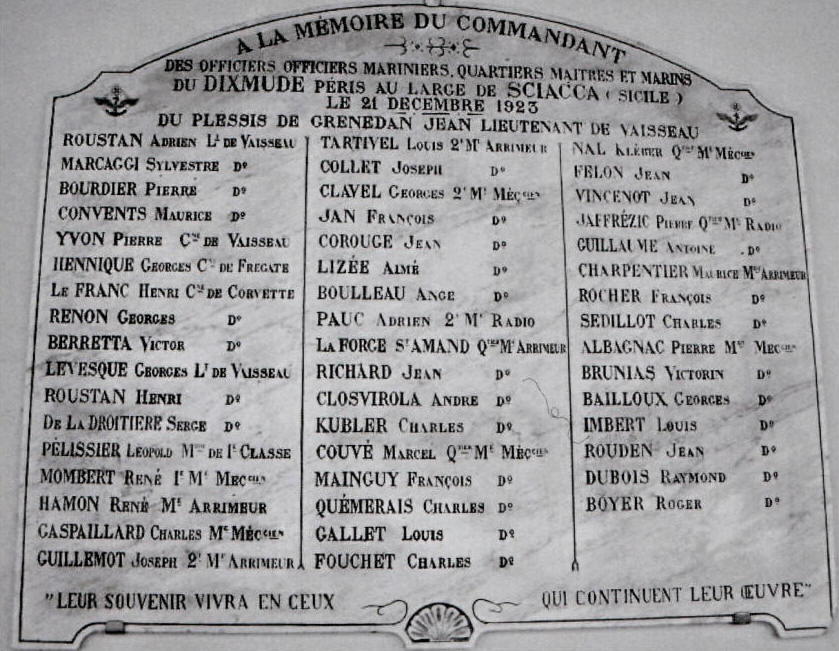 A LA MÉMOIRE DU COMMANDANT
DES OFFICIERS OFFICIERS MARINIERS, QUARTIERS MAITRES ET MARINS
DU DIXMUDE PÉRIS AU LARGE DE SCIACCA (SICILE)
LE 21 DECEMBRE 1923
DU PLESSIS DE GRENEDAN JEAN LIEUTENANT DE VAISSEAU
ROUSTAN ADRIEN Lt DE VAISSEAU
MARCAGGI SYLVESTRE Do
BOURDIER PIERRE Do
CONVENTS MAURICE Do
YVON PIERRE Cne DE VAISSEAU
HENNIQUE GEORGES Cne DE FREGATE
LE FRANC HENRI Cne DE CORVETTE
RENON GEORGES Do
BERRETTA VICTOR Do
LEVESQUE GEORGES Lt DE VAISSEAU
ROUSTAN HENRI Do
DE LA DROITIERE SERGE Do
PÉLISSIER LÉOPOLD Min DE 1e CLASSE
MOMBERT RENÉ 1e Me MEÇcien
HAMON RENÉ Me ARRIMEUR
GASPAILLARD CHARLES Me MÉÇcien
GUILLEMOT JOSEPH 2e Me ARRIMEUR
TARTIVEL LOUIS 2e Me ARRIMEUR
COLLET JOSEPH Do
CLAVEL GEORGES 2e Me MÉÇcien
JAN FRANÇOIS Do
COROUGE JEAN Do
LIZÉE AIMÉ Do
BOULLEAU ANGE Do
PAUC ADRIEN 2e Me RADIO
LAFORGE St AMAND Qtier Me ARRIMEUR
RICHARD JEAN Do
CLOSVIROLA ANDRE Do
KUBLER CHARLES Do
COUVÉ MARCEL Qtier Me MÉÇcien
MAINGUY FRANÇOIS Do
QUÉMERAIS CHARLES Do
GALLET LOUIS Do
FOUCHET CHARLES Do
NAL KLÉBER Qtier Me MÉÇcien
FELON JEAN Do
VINCENOT JEAN Do
JAFFRÉZIC PIERRE Qtier Me RADIO
GUILLAUME ANTOINE Do
CHARPENTIER MAURICE Mot ARRIMEUR
ROCHER FRANÇOIS Do
SEDILLOT CHARLES Do
ALBAGNAC PIERRE Mot MEÇcien
BRUNIAS VICTORIN Do
BAILLOUX GEORGES Do
IMBERT LOUIS Do
ROUDEN JEAN Do
DUBOIS RAYMOND Do
BOYER ROGER Do
"LEUR SOUVENIR VIVRA EN CEUX QUI CONTINUENT LEUR ŒUVRE"